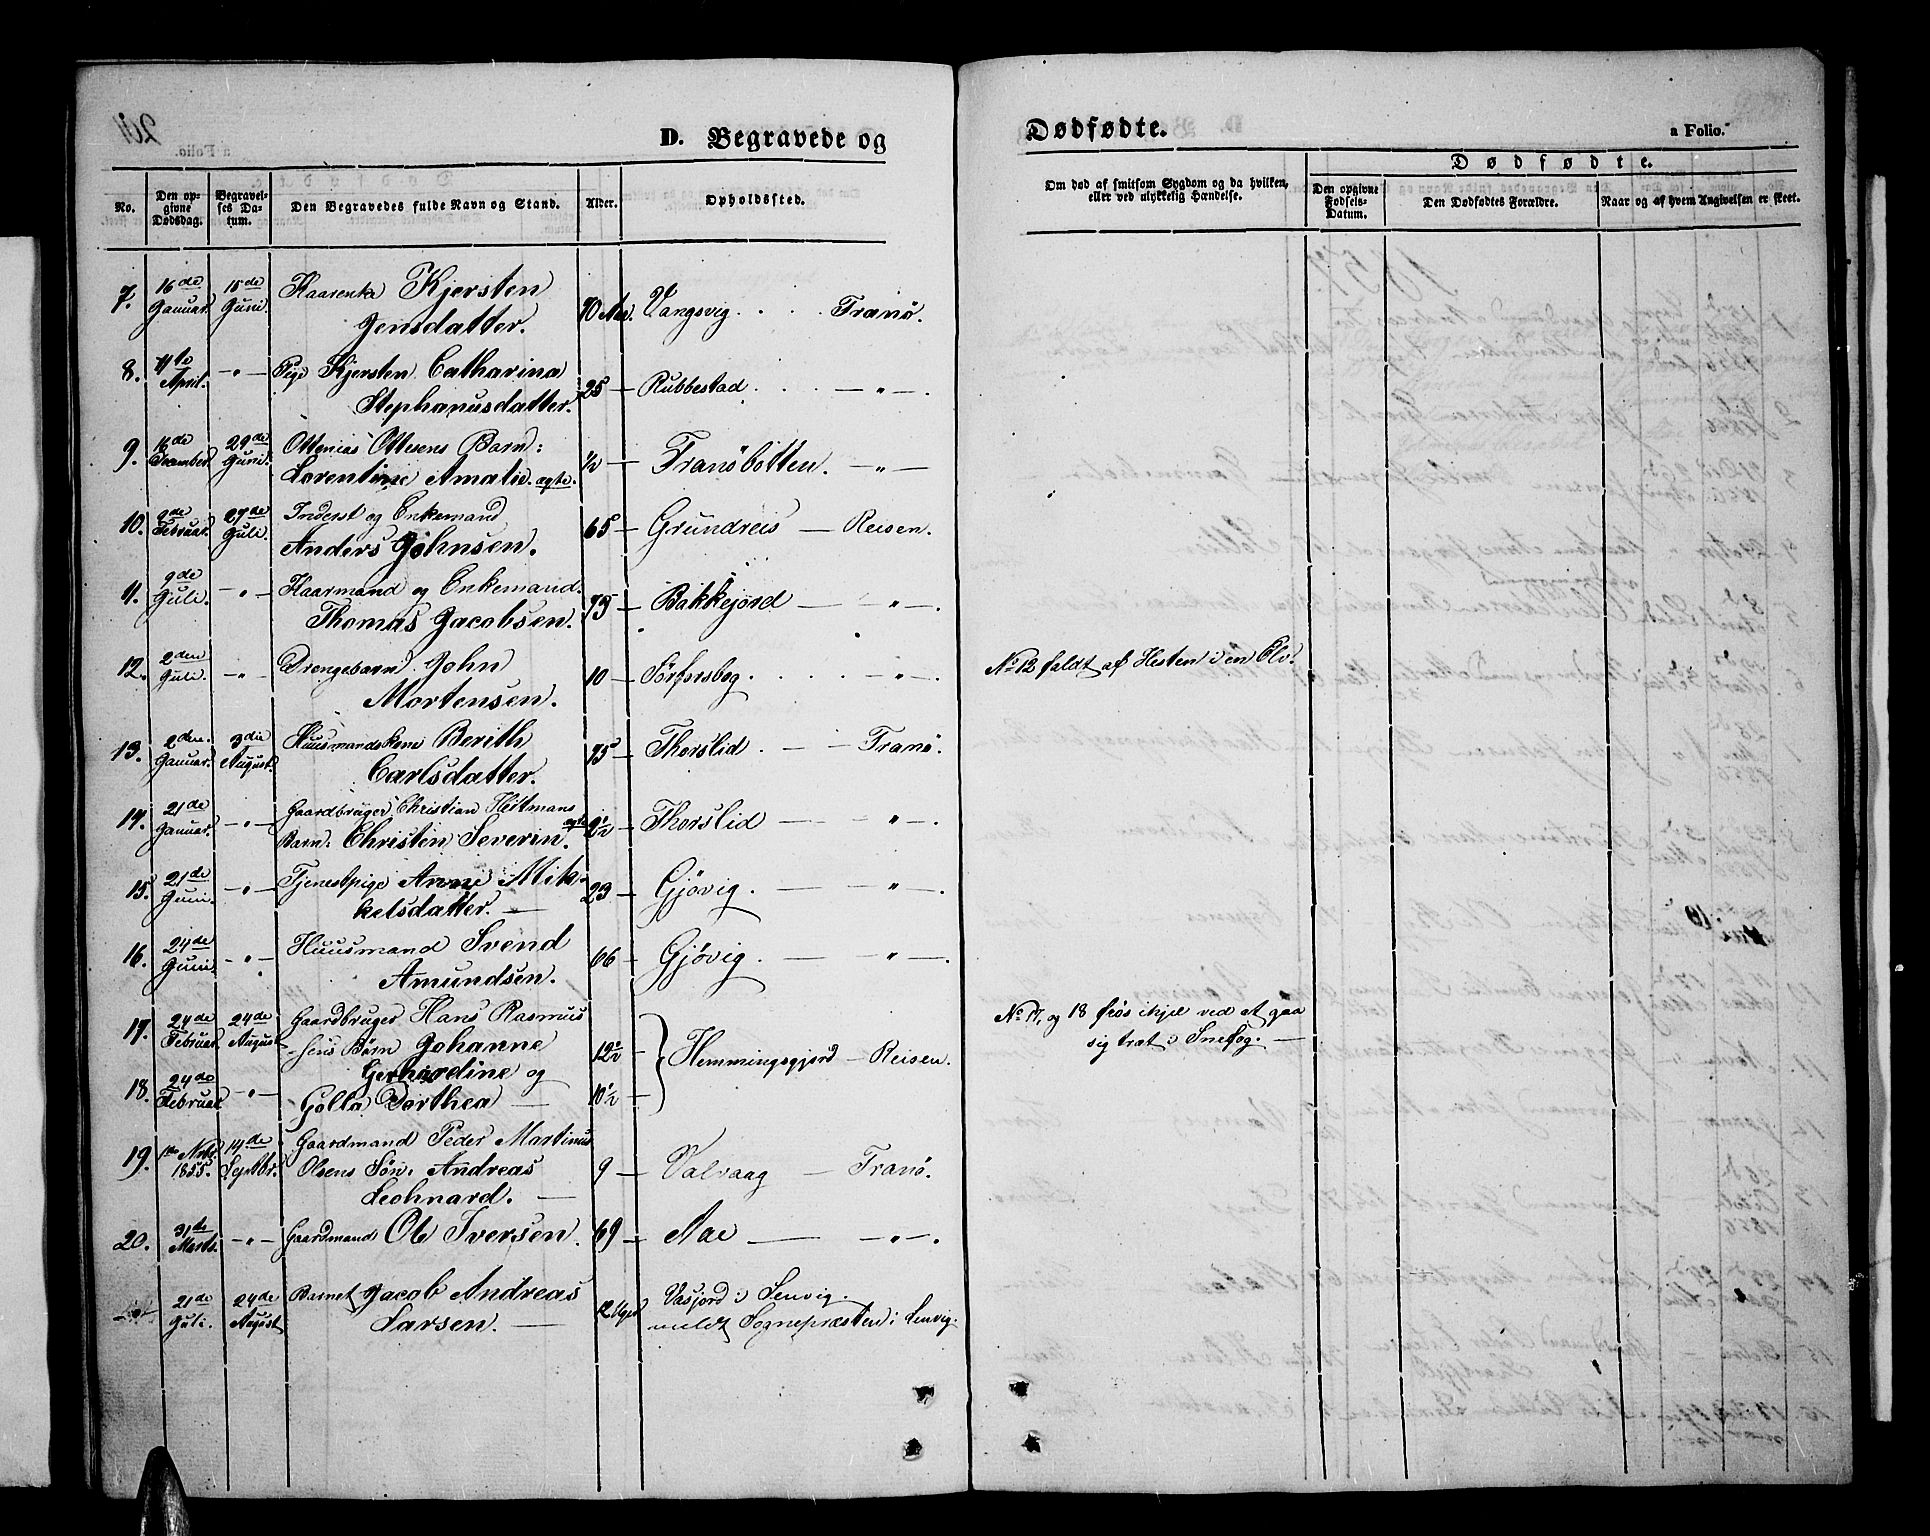 D. Begravede og
Dødfødte.
a Folio.
No.
Den opgivne Dødsdag.
Begravelses Datum.
Den Begravedes fulde Navn og Stand.
Alder.
Opholdssted.
Om død af smitsom Sygdom og da hvilken, eller ved ulykkelig Hændelse.
Dødfødte.
Den opgivne Fødsels-Datum.
Den Dødfødtes Forældre.
Naar og af hvem Angivelsen er skeet.
7. 16de Januar. 15de Juni. Kaarenke Kjersten
Jensdatter. 70 Aar. Vangsvig. Tranö.
8. 11te April. — " — Pige Kjersten Catharina
Stephanusdatter. 25 — Rubbestad. — " — .
9. 16de December. 29de Juni. Ottenias Ottesens Barn:
Lorentine Amalie. ægte. ½ — Tranöbotten. — " —
10. 2de Februar. 27de Juli. Inderst og Enkemand
Anders Johnsen. 65 — Grundreis — Reisen.
11. 9de Juli. — " — Kaarmand og Enkemand.
Thomas Jacobsen. 75 — Bakkejord — — " — .
12. 2den Juli. — " — Drengebarn John
Mortensen. 10 — Sörforsbog. — " — .
No 12 faldt af Hesten i en Elv.
13. 2den Januar. 3die August. Huusmandskone Berith
Carlsdatter. 75 — Thorslid. — Tranö.
14. 21de Januar. — " — Gaardbruger Christian Heitmans
Barn. Christen Severin. ægte 2½ — Thorslid — " — .
15. 21de Juni. — " — Tjenestpige Anne Mik-
kelsdatter. — 23 — Gjövig. — " —
16. 24de Juni. — " — Huusmand Svend
Amundsen. 66 — Gjövig. — " — .
17. 24de Februar. 24de August. Gaardbruger Hans Rasmus
sens Börn Johanne
Gerhardine og
18. 24de Februar. — " — Golla Dorthea — 10½ —
Hemmingsgjord — Reisen.
No 17, og 18 frös ihjel ved at gaa
sig træt i Snefog. —
19. 1ste Novbr. 1855. 14de Septbr. Gaardmand Peder Martinus
Olsens Sön. Andreas
Leohnard. — 9 — Valvaag — Tranö.
20. 31te Marts. — " — Gaardmand Ole Iversen. 69 — Aae — " — .
21de Juli. 24de August Barnet Jacob Andreas
Larsen. — 12 Uger Vasjord i Lenvig.
meldt Sognepræsten i Lenvig.